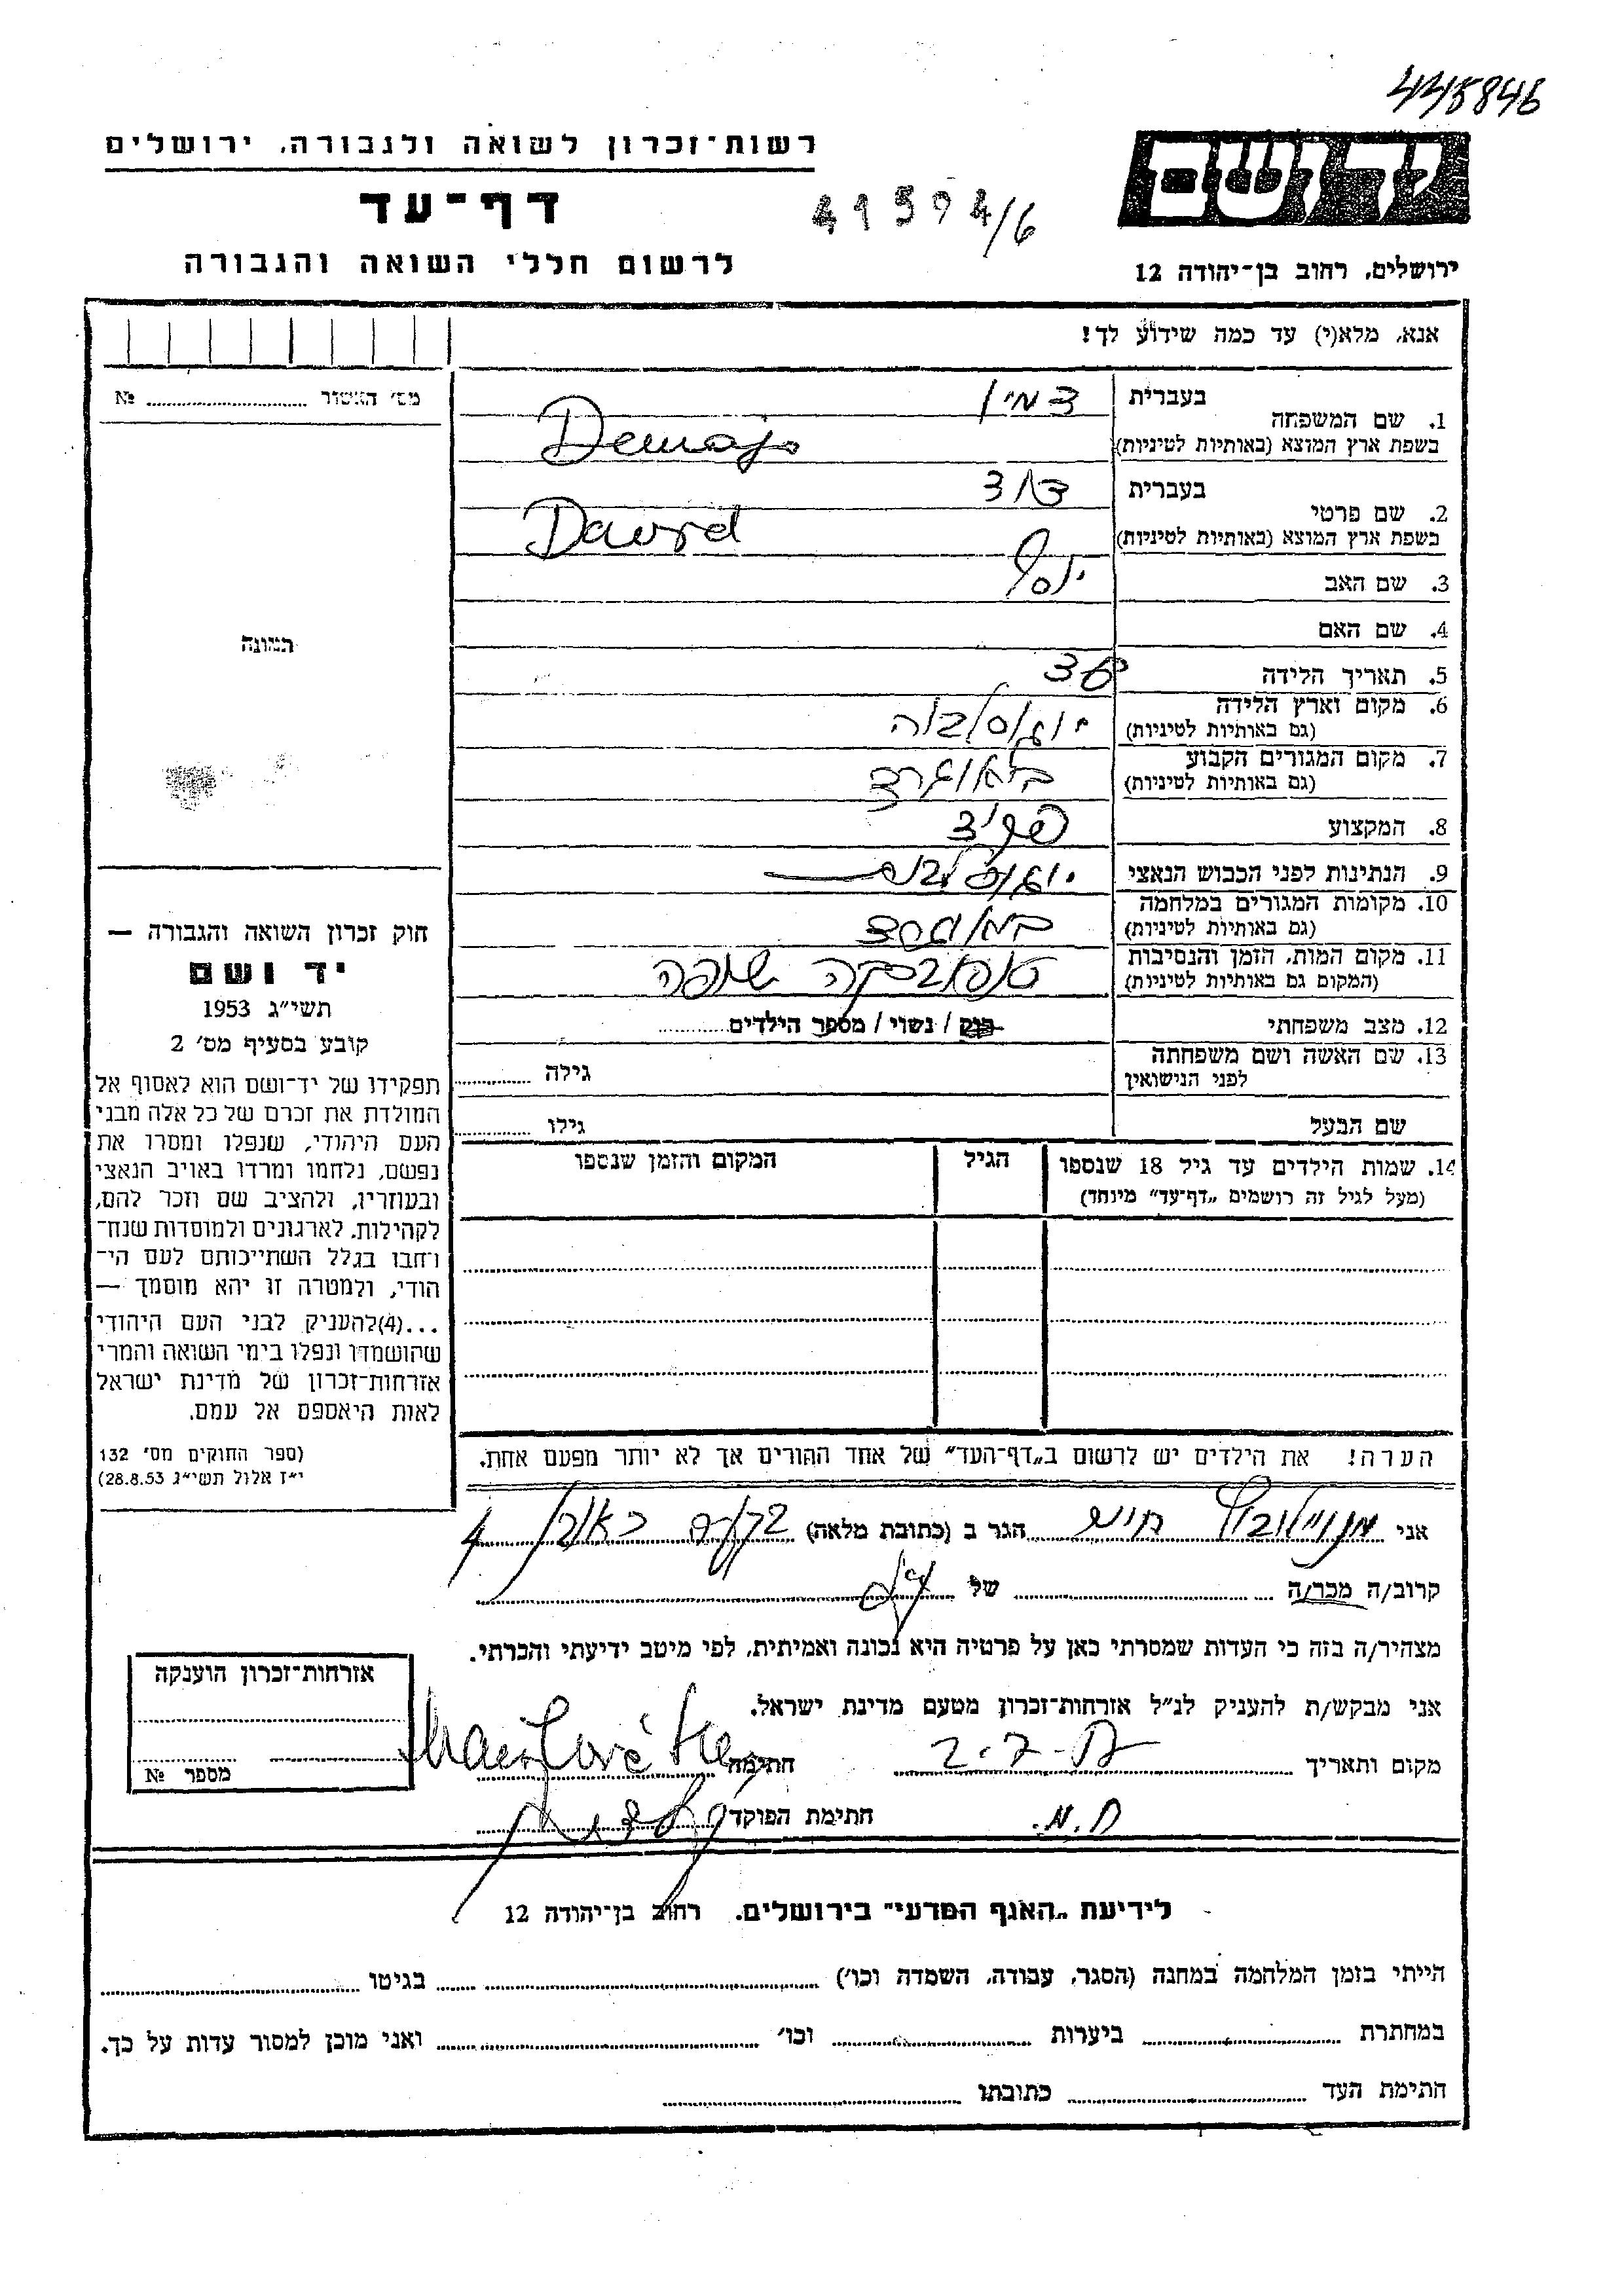 445846
רשות־זכרון לשואה ולגבורה, ירושלים
יד ושם
דף־עד
41594/6
לרשום חללי השואה והגבורה
ירושלים, רחוב בן־יהודה 12
אנא, מלא(י) עד כמה שידוע לך!
מס׳ האשור № 
1. שם המשפחה בעברית
בשפת ארץ המוצא (באותיות לטיניות) Demajo
2. שם פרטי בעברית דוד
בשפת ארץ המוצא (באותיות לטיניות) David
3. שם האב יוסף
4. שם האם
5. תאריך הלידה
6. מקום וארץ הלידה יוגוסלביה
(גם באותיות לטיניות)
7. מקום המגורים הקבוע בלאוגרד
(גם באותיות לטיניות)
8. המקצוע פקיד
9. הנתינות לפני הכבוש הנאצי
10. מקומות המגורים במלחמה בלאוגרד
(גם באותיות לטיניות)
11. מקום המות, הזמן והנסיבות
(המקום גם באותיות לטיניות)
12. מצב משפחתי רוק / נשוי / מספר הילדים
13. שם האשה ושם משפחתה
לפני הנישואין גילה
שם הבעל גילו
14. שמות הילדים עד גיל 18 שנספו הגיל המקום והזמן שנספו
(מעל לגיל זה רושמים „דף־עד” מיוחד)
הערה! את הילדים יש לרשום ב„דף־העד” של אחד ההורים אך לא יותר מפעם אחת.
תמונה
חוק זכרון השואה והגבורה —
יד ושם
תשי״ג 1953
קובע בסעיף מס׳ 2
תפקידו של יד־ושם הוא לאסוף אל
המולדת את זכרם של כל אלה מבני
העם היהודי, שנפלו ומסרו את
נפשם, נלחמו ומרדו באויב הנאצי
ובעוזריו, ולהציב שם וזכר להם,
לקהילות, לארגונים ולמוסדות שנח־
רחבו בגלל השתייכותם לעם הי־
הודי, ולמטרה זו יהא מוסמך —
...(4)להעניק לבני העם היהודי
שהושמדו ונפלו בימי השואה והמרי
אזרחות־זכרון של מדינת ישראל
לאות היאספם אל עמם.
(ספר החוקים מס׳ 132
י״ז אלול תשי״ג 28.8.53)
אני חיים הגר ב (כתובת מלאה) 4
קרוב/ה מכר/ה של
מצהיר/ה בזה כי העדות שמסרתי כאן על פרטיה היא נכונה ואמיתית, לפי מיטב ידיעתי והכרתי.
אני מבקש/ת להעניק לנ״ל אזרחות־זכרון מטעם מדינת ישראל.
מקום ותאריך חתימה
ת.א. חתימת הפוקד
אזרחות־זכרון הוענקה
מספר №
לידיעת „האגף המדעי” בירושלים. רחוב בן־יהודה 12
הייתי בזמן המלחמה במחנה (הסגר, עבודה, השמדה וכו׳) בגיטו
במחתרת ביערות וכו׳ ואני מוכן למסור עדות על כך.
חתימת העד כתובתו